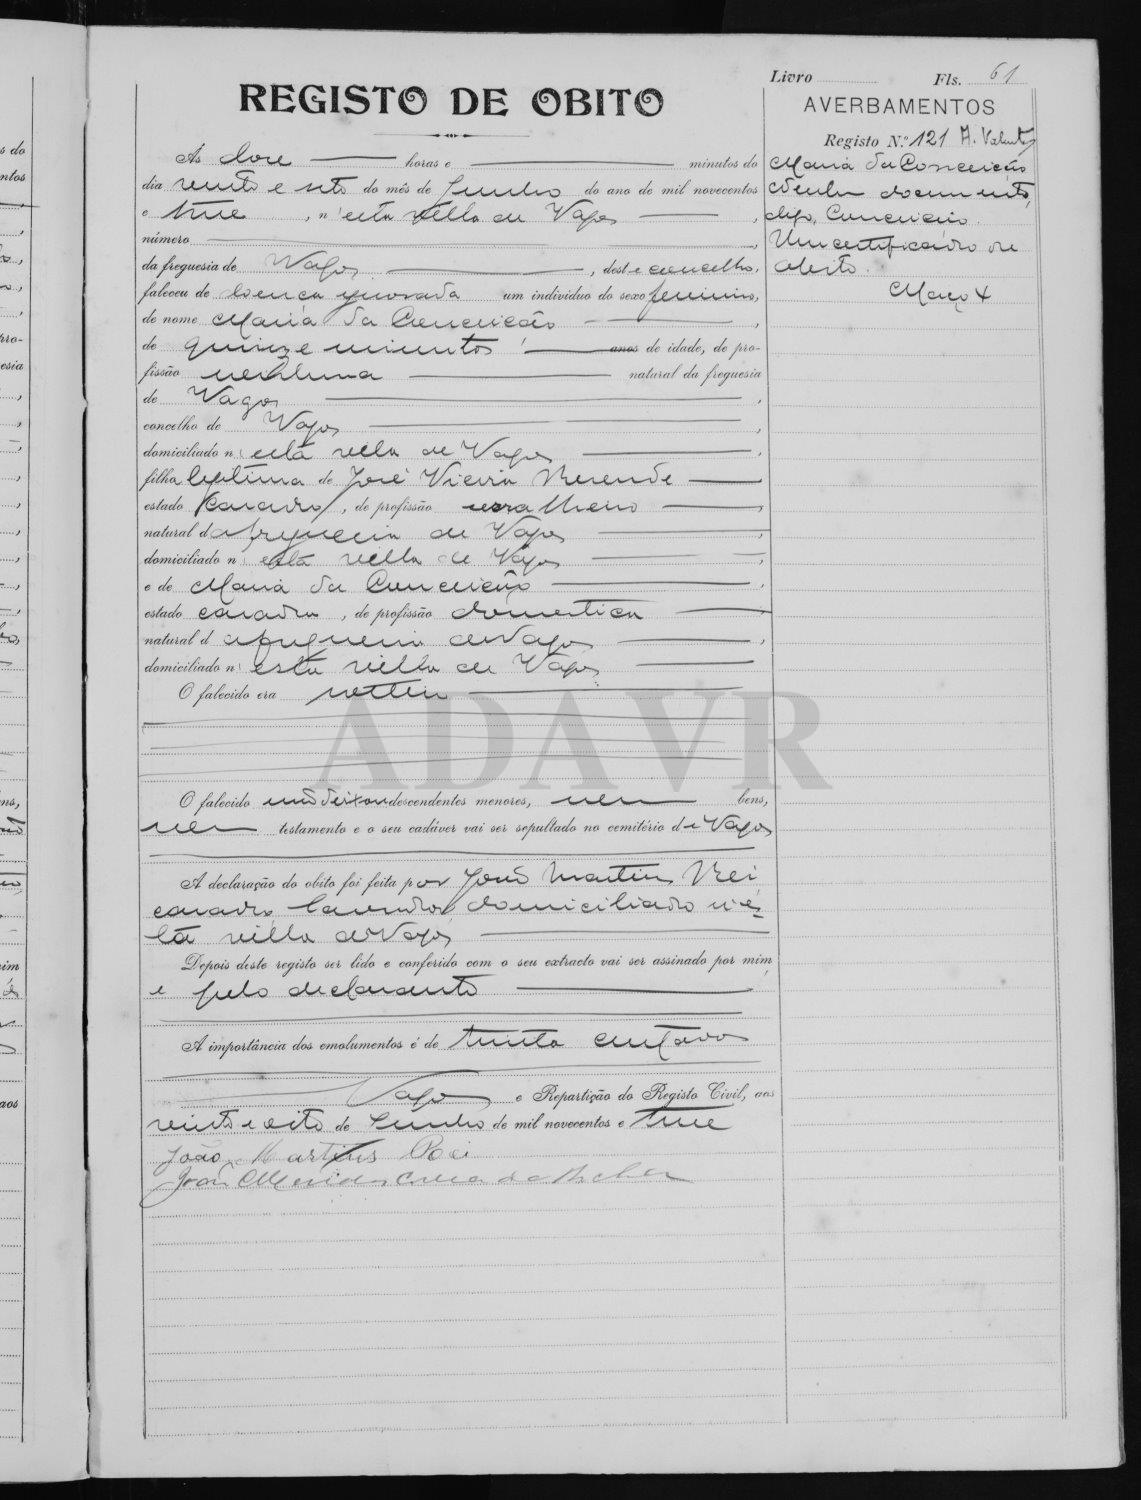 Livro Fls. 61
REGISTO DE OBITO
AVERBAMENTOS
Registo N.º 121
Ás doze horas e minutos do
dia vinte e sete do mês de Junho do ano de mil novecentos
e treze, n'esta villa de Vagos,
número
da freguesia de Vagos, deste concelho,
faleceu de doença ignorada um individuo do sexo feminino,
de nome Maria da Conceição,
de quinze minutos anos de idade, de pro-
fissão nenhuma natural da freguesia
de Vagos,
concelho de Vagos,
domiciliado n'esta villa de Vagos,
filha legitima de José Vieira Resende
estado casado, de profissão
natural da freguesia de Vagos,
domiciliado n'esta villa de Vagos,
e de Maria da Conceição,
estado casada, de profissão domestica
natural da freguesia de Vagos,
domiciliado n'esta villa de Vagos
O falecido era solteira
O falecido não deixou descendentes menores, nem bens,
nem testamento e o seu cadáver vai ser sepultado no cemitério de Vagos
A declaração do obito foi feita por João Martins Rei,
casado, lavrador, domiciliado n'es-
ta villa de Vagos
Depois deste registo ser lido e conferido com o seu extracto vai ser assinado por mim
e pelo declarante
A importância dos emolumentos é de trinta centavos
Vagos e Repartição do Registo Civil, aos
vinte e oito de Junho de mil novecentos e treze
João Martins Rei
João
Maria da Conceição
documento,
digo, Conceição.
Um certificado de
obito.
ADAVR